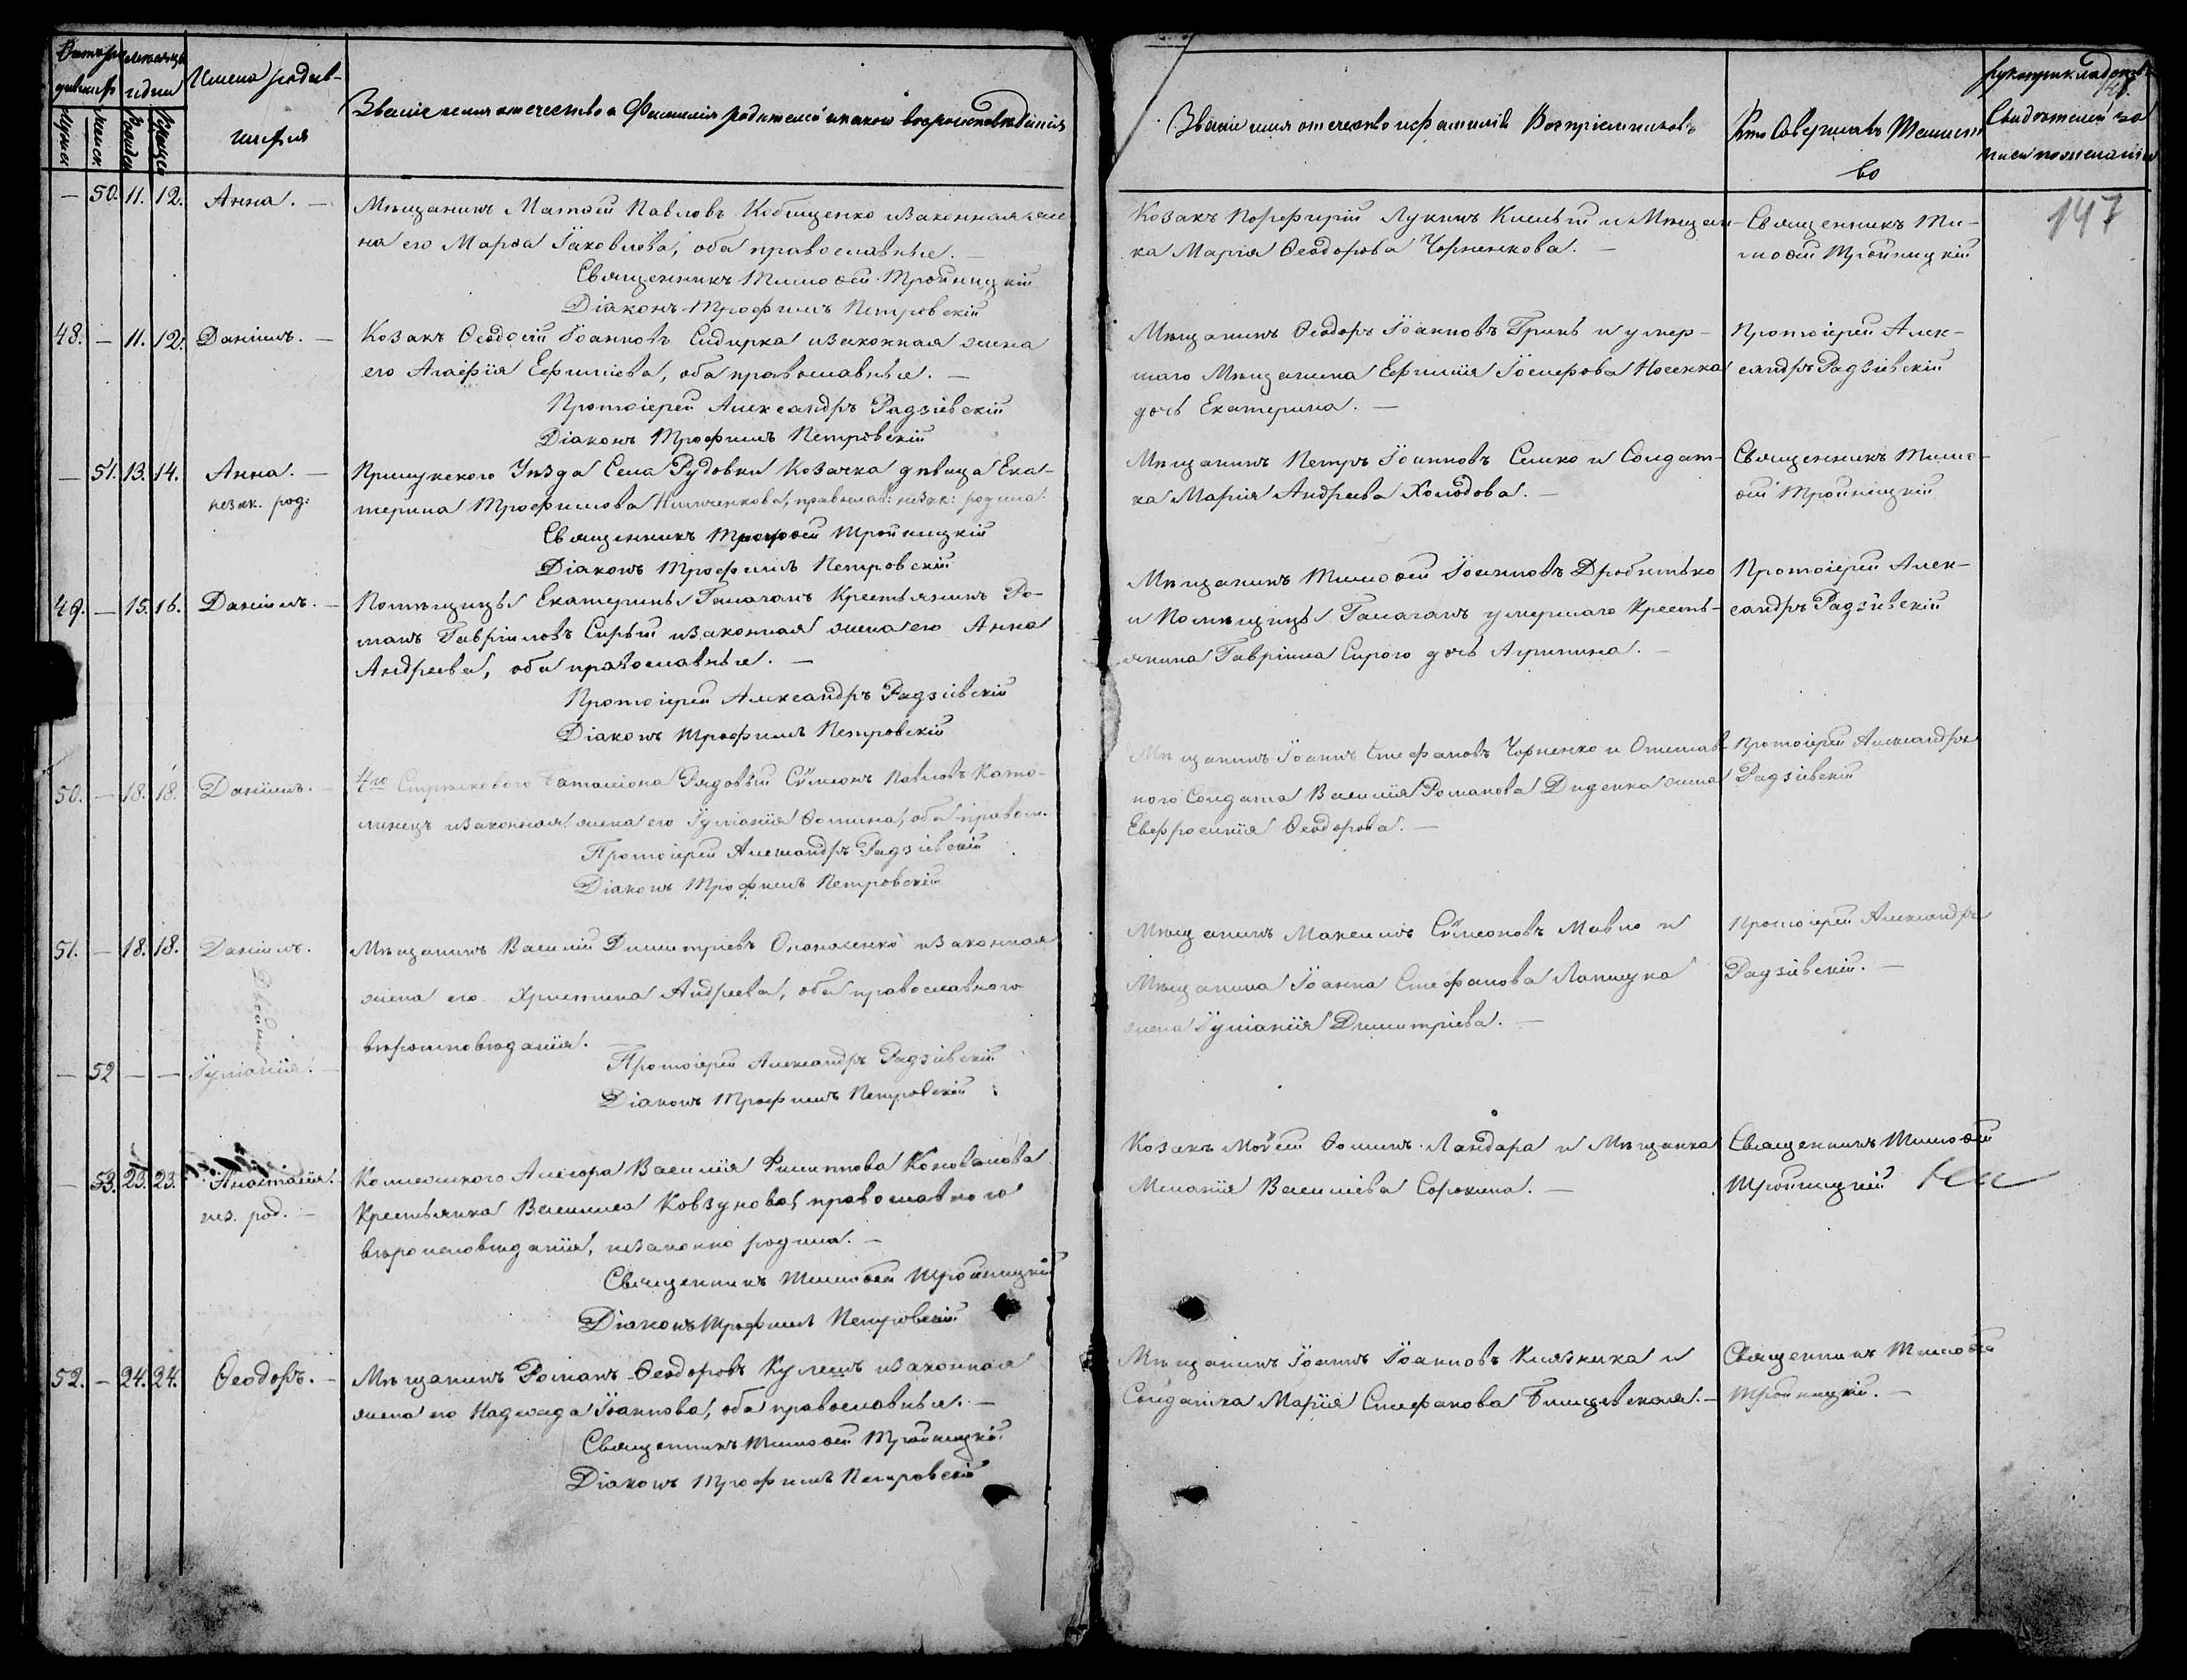 Имена родив-
шихся
Званіе имя отечество и Фамилія родителей и какого вероисповеданія
Званіе имя отечество и фамилія Воспріемниковъ
Кто Совершалъ Таинст
во
рукоприкладство
Свидѣтелей за
писи по желанію
147
— 50. 11. 12. Анна. —
Мѣщанинъ Матѳей Павловъ и законная же
на его Марѳа Іаковлева, оба православные. —
Священникъ Тимоѳей Тройницкій
Діаконъ Трофимъ Петровскій
Козакъ Порфирій Лукинъ и Мѣщан-
ка Марія Ѳеодорова Чорненкова. —
Священникъ Ти-
моѳей Тройницкій
48. — 11. 12. Даніилъ. —
Козакъ Ѳеодосій Іоанновъ Сидирка и законная жена
его Агафія Ефиміева, оба православные. —
Протоіерей Александръ Радзіевскій
Діаконъ Трофимъ Петровскій
Мѣщанинъ Ѳеодоръ Іоанновъ Гринь и умер-
шаго Мѣщанина Ефимія Іосифова Носенка
дочь Екатерина. —
Протоіерей Алек-
сандръ Радзіевскій
— 51. 13. 14. Анна. —
незак. род:
Прилукского Уѣзда Села Рудовки Козачка дѣвица Ека-
терина Трофимова православ: незак: родила.
Священникъ Тройницкій
Діаконъ Трофимъ Петровскій
Мѣщанинъ Петръ Іоанновъ Сашко и Солдат-
ка Марія Андреева Холодова. —
Священникъ Тимо-
ѳей Тройницкій
49. — 15. 16. Даніилъ. —
Помѣщицы Екатерины Галаганъ Крестьянинъ Ро-
манъ Гавріиловъ Сирый и законная жена его Анна
Андреева, оба православные. —
Протоіерей Александръ Радзіевскій
Діаконъ Трофимъ Петровскій
Мѣщанинъ Тимоѳей Іоанновъ Дробитько
и Помѣщицы Галаганъ умершаго Кресть-
янина Гавріила Сирого дочь Агрипина. —
Протоіерей Алек-
сандръ Радзіевскій
50. — 18. 18. Даніилъ. —
4го Стрелкового Баталіона Рядовый Сѵмеонъ Павловъ Като-
линецъ и законная жена его Іуліанія Ѳомина, оба правосл.
Протоіерей Александръ Радзіевскій
Діаконъ Трофимъ Петровскій
Мѣщанинъ Іоаннъ Стефановъ Чорненко и Отстав
ного Солдата Василія Романова Диденка жена
Евфросинія Ѳеодорова. —
Протоіерей Александръ
Радзіевскій
51. — 18. 18. Даніилъ.
Двойни
— 52 — — Іуліанія. —
Мѣщанинъ Василій Димитріевъ и законная
жена его Христина Андреева, оба православного
вѣроисповѣданія. —
Протоіерей Александръ Радзіевскій
Діаконъ Трофимъ Петровскій
Мѣщанинъ Максимъ Сѵмеоновъ Мавло и
Мѣщанина Іоанна Стефанова Лапшука
жена Іуліанія Димитріева. —
Протоіерей Александръ
Радзіевскій. —
— 53. 23. 23. Анастасія.
нез. род. —
Коллежского Асессора Василія Филиппова Коновалова
Крестьянка Василиса Ковзунова, православного
вѣроисповѣданія, незаконно родила. —
Священникъ Тимоѳей Тройницкій
Діаконъ Трофимъ Петровскій
Козакъ Моѵсей Ѳоминъ Ландара и Мѣщанка
Меланія Василіева Сорокина. —
Священникъ Тимоѳей
Тройницкій
52. — 24. 24. Ѳеодоръ. —
Мѣщанинъ Романъ Ѳеодоровъ Кулешъ и законная
жена его Надежда Іоаннова, оба православные. —
Священникъ Тимоѳей Тройницкій
Діаконъ Трофимъ Петровскій
Мѣщанинъ Іоаннъ Іоанновъ Княжика и
Солдатка Марія Стефанова Билецевская. —
Священникъ Тимоѳей
Тройницкій. —